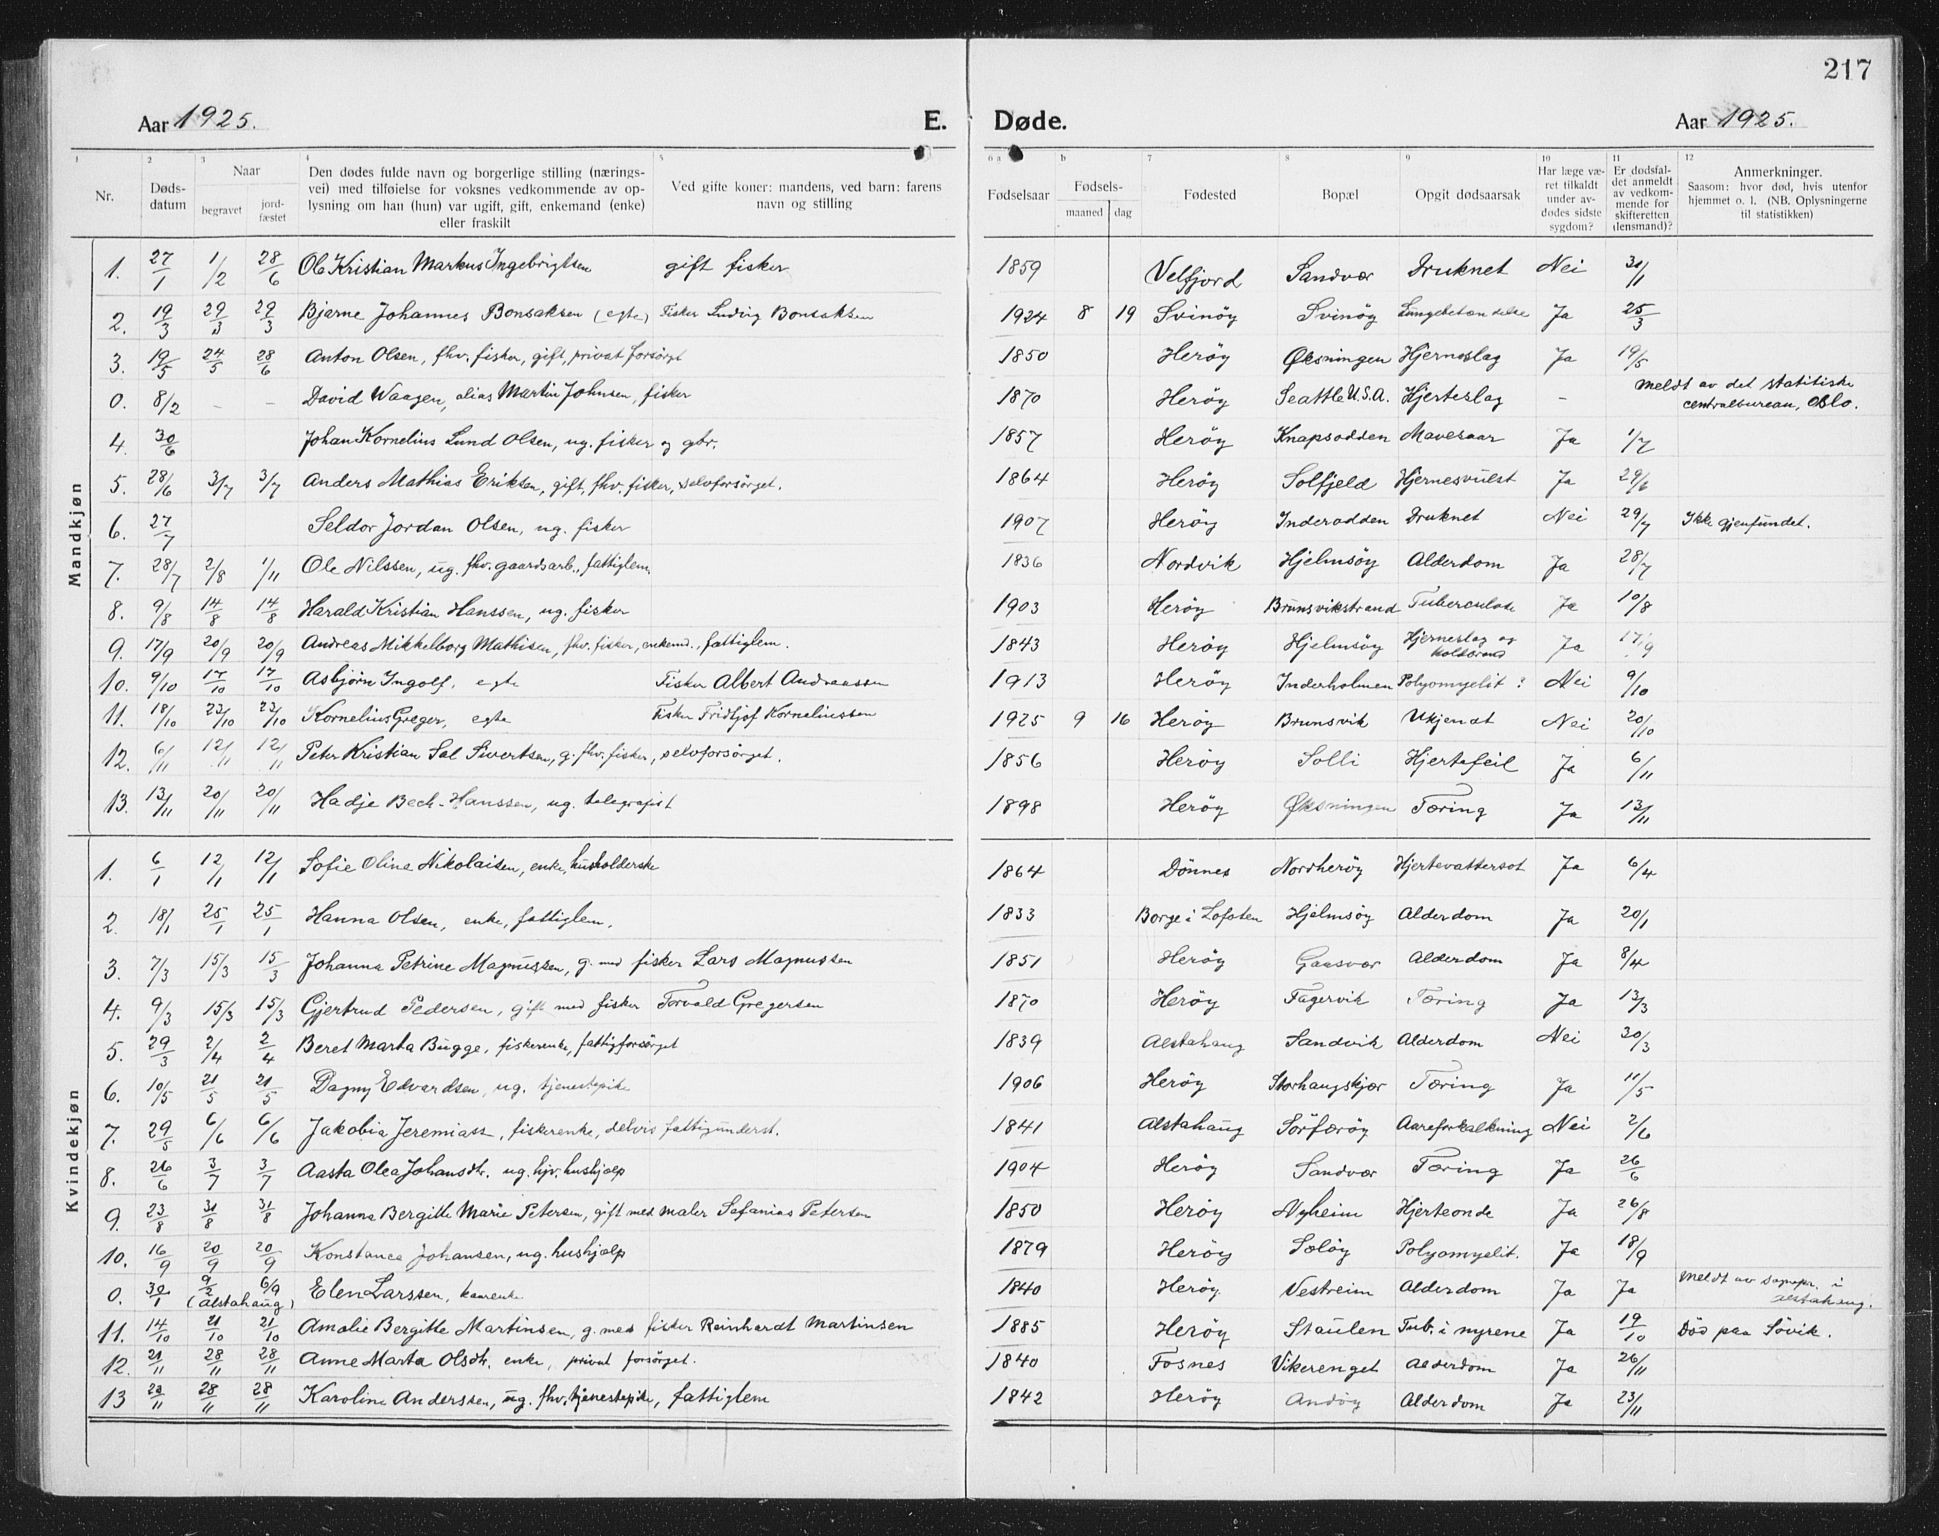 217
Aar 1925. E. Døde. Aar 1925.
1 2 3 4 5 6 a b 7 8 9 10 11 12
Nr. Døds-datum Naar begravet jord-fæstet Den dødes fulde navn og borgerlige stilling (nærings-vei) med tilføielse for voksnes vedkommende av op-lysning om han (hun) var ugift, gift, enkemand (enke) eller fraskilt Ved gifte koner: mandens, ved barn: farens navn og stilling Fødselsaar Fødsels- maaned dag Fødested Bopæl Opgit dødsaarsak Har læge væ-ret tilkaldt under av-dødes sidste sygdom? Er dødsfal-det anmeldt av vedkom-mende for skifteretten (lensmand)? Anmerkninger. Saasom: hvor død, hvis utenfor hjemmet o. l. (NB. Oplysningerne til statistikken)
Mandkjøn
1. 27/1 1/2 28/6 Ole Kristian Markus Ingebrigtsen gift fisker 1859 Velfjord Sandvær Druknet Nei 31/1
2. 19/3 29/3 29/3 Bjarne Johannes Bonsaksen (egte) Fisker Ludvig Bonsaksen 1924 8 19 Svinöy Svinöy Lungebetændelse Ja 25/3
3. 19/5 24/5 28/6 Anton Olsen, fhv. fisker, gift, privat forsörgt 1850 Heröy Øksningen Hjerneslag Ja 19/5
0. 8/2 - - David Waagen, alias Martin Johnsen, fisker 1870 Heröy Seattle U.S.A. Hjerteslag - meldt av det statitiske centralbureau, Oslo.
4. 30/6 Johan Kornelius Lund Olsen, ug. fisker og gbr. 1857 Heröy Knapsodden Mavesaar Ja 1/7
5. 28/6 3/7 3/7 Anders Mathias Eriksen, gift, fhv. fisker, selvforsörget. 1864 Heröy Solfjeld Hjernesvulst Ja 29/6
6. 27/7 Seldor Jordan Olsen, ug. fisker 1907 Heröy Inderodden Druknet Nei 29/7 Ikke gjenfundet.
7. 28/7 2/8 1/11 Ole Nilssen, ug. fhv. gaardsarb., fattiglem. 1836 Nordvik Hjelmsöy Alderdom Ja 28/7
8. 9/8 14/8 14/8 Harald Kristian Hanssen, ug. fisker 1903 Heröy Brunsvikstrand Tuberculose Ja 10/8
9. 17/9 20/9 20/9 Andreas Mikkelborg Mathisen, fhv. fisker, enkemd., fattiglem. 1843 Heröy Hjelmsöy Hjerneslag og koldbrand Ja 17/9
10. 9/10 17/10 17/10 Asbjörn Ingolf, egte Fisker Albert Andreassen 1913 Heröy Inderholmen Polyomyelit? Nei 9/10
11. 18/10 23/10 23/10 Kornelius Greger, egte Fisker Fridtjof Korneliussen 1925 9 16 Heröy Brunsvik Ukjendt Nei 20/10
12. 6/11 12/11 12/11 Peter Kristian Sal Sivertsen, g. fhv. fisker, selvforsörget. 1856 Heröy Solli Hjertefeil Ja 6/11
13. 13/11 20/11 20/11 Hadje Bech-Hanssen, ug. telegrafist 1898 Heröy Øksningen Tæring Ja 13/11
Kvindekjøn
1. 6/1 12/1 12/1 Sofie Oline Nikolaisen, enke, husholderske 1864 Dönnes Nordheröy Hjertevattersot Ja 6/4
2. 18/1 25/1 25/1 Hanna Olsen, enke, fattiglem. 1833 Borge i Lofoten Hjelmsöy Alderdom Ja 20/1
3. 7/3 15/3 15/3 Johanna Petrine Magnussen, g. med fisker Lars Magnussen 1851 Heröy Gaasvær Alderdom Ja 8/4
4. 9/3 15/3 15/3 Gjertrud Pedersen, gift med fisker Torvald Gregersen 1870 Heröy Fagervik Tæring Ja 13/3
5. 29/3 2/4 2/4 Beret Marta Bugge, fiskerenke, fattigforsörget 1839 Alstahaug Sandvik Alderdom Nei 30/3
6. 10/5 21/5 21/5 Dagny Edvardsen, ug. tjenestepike 1906 Heröy Storhaugskjær Tæring Ja 11/5
7. 29/5 6/6 6/6 Jakobia Jeremiass, fiskerenke, delvis fattigunderst. 1841 Alstahaug Sörfæröy Aareforkalkning Nei 2/6
8. 26/6 3/7 3/7 Aasta Olea Johansdtr. ug. hjv. hushjælp 1904 Heröy Sandvær Tæring Ja 26/6
9. 23/8 31/8 31/8 Johanna Bergitte Marie Petersen, gift med maler Safanias Petersen 1850 Heröy Nyheim Hjerteonde Ja 26/8
10. 16/9 20/9 20/9 Konstanca Johansen, ug. hushjælp 1879 Heröy Solöy Polyomyelit. Ja 18/9
0. 30/1 9/2 6/9 (Alstahaug) Elen Larssen, kaarenke 1840 Heröy Vestreim Alderdom Ja Ja Meldt av sognepr. i Alstahaug.
11. 14/10 21/10 21/10 Amalie Bergitte Martinsen, g. med fisker Reinhardt Martinsen 1885 Heröy Staulen Tub. i nyrene Ja 19/10 Död paa Sövik.
12. 21/11 28/11 28/11 Anne Marta Olsdtr. enke, privat forsörget. 1840 Fosnes Vikerenget Alderdom Ja 26/11
13 22/11 28/11 28/11 Karoline Anderssen, ug. fhv. tjenestepike, fattiglem 1842 Heröy Andöy Alderdom Ja 23/11